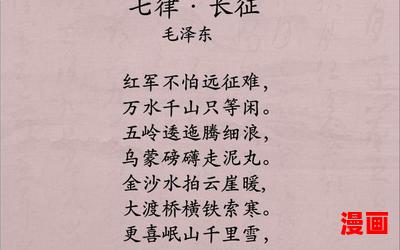 七律·长征
毛泽东
红军不怕远征难，
万水千山只等闲。
五岭逶迤腾细浪，
乌蒙磅礴走泥丸。
金沙水拍云崖暖，
大渡桥横铁索寒。
更喜岷山千里雪，
漫画